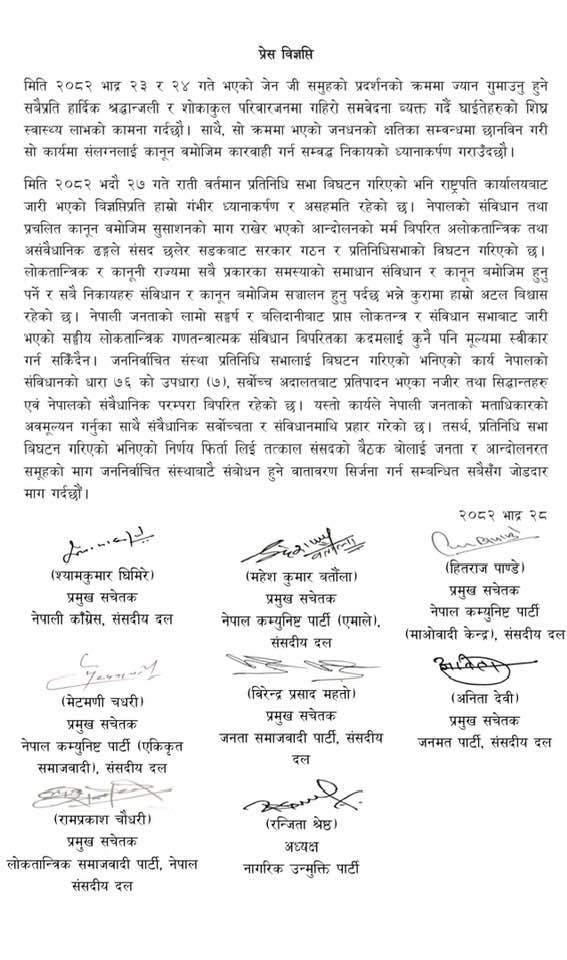 प्रेस विज्ञप्ति
मिति २०८२ भाद्र २३ र २४ गते भएको जेन जी समुहको प्रदर्शनको क्रममा ज्यान गुमाउनु हुने
सबैप्रति हार्दिक श्रद्धान्जली र शोकाकुल परिवारजनमा गहिरो समवेदना व्यक्त गर्दै घाईतेहरुको शिघ्र
स्वास्थ्य लाभको कामना गर्दछौ। साथै, सो क्रममा भएको जनधनको क्षतिका सम्वन्धमा छानविन गरी
सो कार्यमा संलग्नलाई कानून वमोजिम कारवाही गर्न सम्वद्ध निकायको ध्यानाकर्षण गराउँदछौ।
मिति २०८२ भदौ २७ गते राती वर्तमान प्रतिनिधि सभा विघटन गरिएको भनि राष्ट्रपति कार्यालयबाट
जारी भएको विज्ञप्तिप्रति हाम्रो गंभीर ध्यानाकर्षण र असहमति रहेको छ। नेपालको संविधान तथा
प्रचलित कानून वमोजिम सुसाशनको माग राखेर भएको आन्दोलनको मर्म बिपरित अलोकतान्त्रिक तथा
असंवैधानिक ढङ्गले संसद छलेर सडकबाट सरकार गठन र प्रतिनिधिसभाको विघटन गरिएको छ।
लोकतान्त्रिक र कानूनी राज्यमा सबै प्रकारका समस्याको समाधान संविधान र कानून बमोजिम हुनु
पर्ने र सबै निकायहरु संविधान र कानून बमोजिम सञ्चालन हुनु पर्दछ भन्ने कुरामा हाम्रो अटल बिश्वास
रहेको छ। नेपाली जनताको लामो सङ्घर्ष र बलिदानीबाट प्राप्त लोकतन्त्र र संविधान सभाबाट जारी
भएको सङ्घीय लोकतान्त्रिक गणतन्त्रात्मक संविधान बिपरितका कदमलाई कुनै पनि मूल्यमा स्वीकार
गर्न सकिँदैन। जननिर्वाचित संस्था प्रतिनिधि सभालाई बिघटन गरिएको भनिएको कार्य नेपालको
संविधानको धारा ७६ को उपधारा (७), सर्वोच्च अदालतबाट प्रतिपादन भएका नजीर तथा सिद्धान्तहरु
एवं नेपालको संवैधानिक परम्परा बिपरित रहेको छ। यस्तो कार्यले नेपाली जनताको मताधिकारको
अवमूल्यन गर्नुका साथै संवैधानिक सर्वोच्चता र संविधानमाथि प्रहार गरेको छ। तसर्थ, प्रतिनिधि सभा
बिघटन गरिएको भनिएको निर्णय फिर्ता लिई तत्काल संसदको बैठक बोलाई जनता र आन्दोलनरत
समूहको माग जननिर्वाचित संस्थाबाटै संबोधन हुने वातावरण सिर्जना गर्न सम्बन्धित सबैसँग जोडदार
माग गर्दछौं।
२०८२ भाद्र २८
(श्यामकुमार घिमिरे) (महेश कुमार बर्तौला) (हितराज पाण्डे)
प्रमुख सचेतक प्रमुख सचेतक प्रमुख सचेतक
नेपाली काँग्रेस, संसदीय दल नेपाल कम्युनिष्ट पार्टी (एमाले), नेपाल कम्युनिष्ट पार्टी
संसदीय दल (माओवादी केन्द्र), संसदीय दल
(मेटमणी चधरी) (विरेन्द्र प्रसाद महतो) (अनिता देवी)
प्रमुख सचेतक प्रमुख सचेतक प्रमुख सचेतक
नेपाल कम्युनिष्ट पार्टी (एकिकृत जनता समाजवादी पार्टी, संसदीय जनमत पार्टी, संसदीय दल
समाजवादी), संसदीय दल दल
(रामप्रकाश चौधरी) (रन्जिता श्रेष्ठ)
प्रमुख सचेतक अध्यक्ष
लोकतान्त्रिक समाजवादी पार्टी, नेपाल नागरिक उन्मुक्ति पार्टी
संसदीय दल